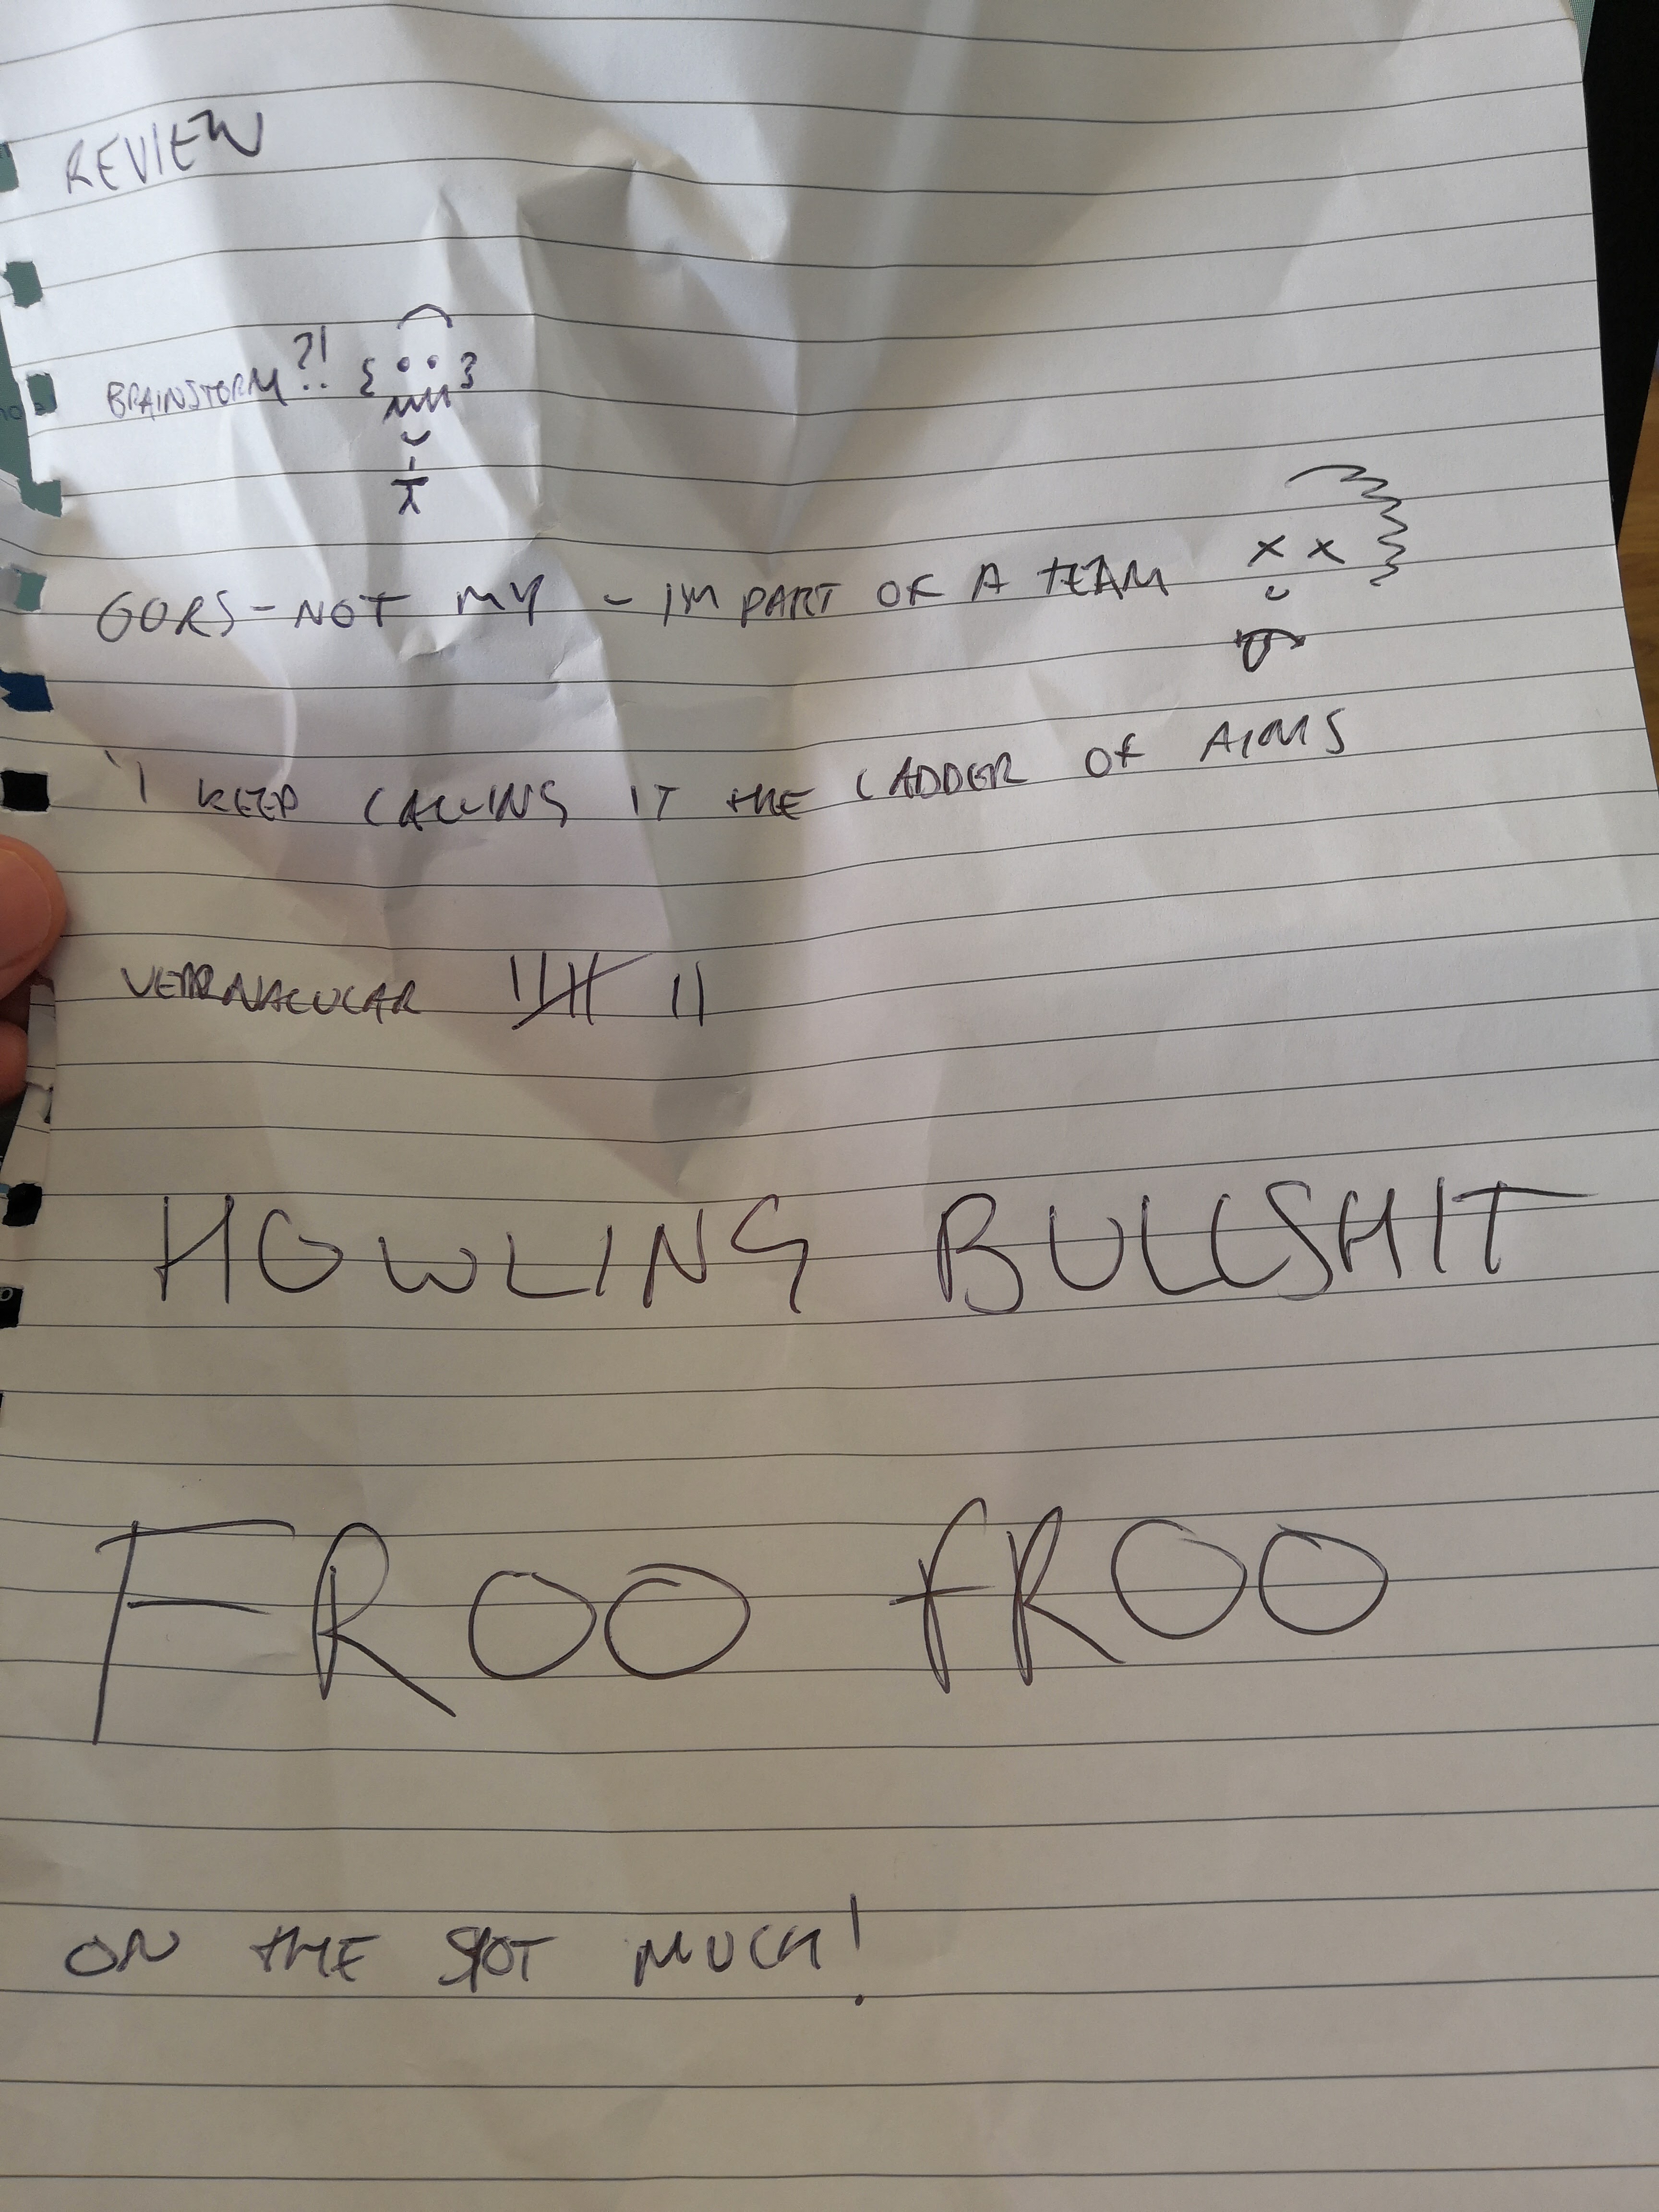 REVIEW
BRAINSTORM?!
OORS - NOT MY - IM PART OF A TEAM
'I KEEP CALLING IT THE LADDER OF AIMS
VERNACULAR
HOWLING BULLSHIT
FROO FROO
ON THE SPOT MUCH!